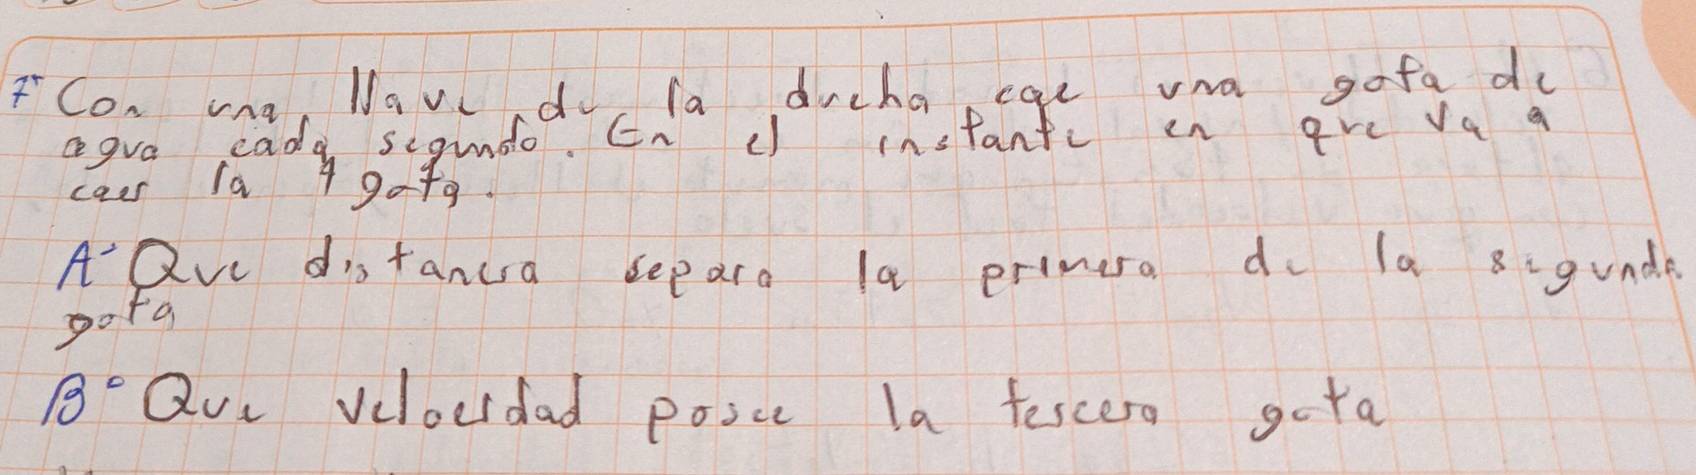 7° Con una llave de la ducha cae una gota de
agua cada segundo. En el instante en que va a
caer la 4 gota.
A° Que distancia separa la primera de la segunda
gota
B° Que velocidad posee la tercera gota